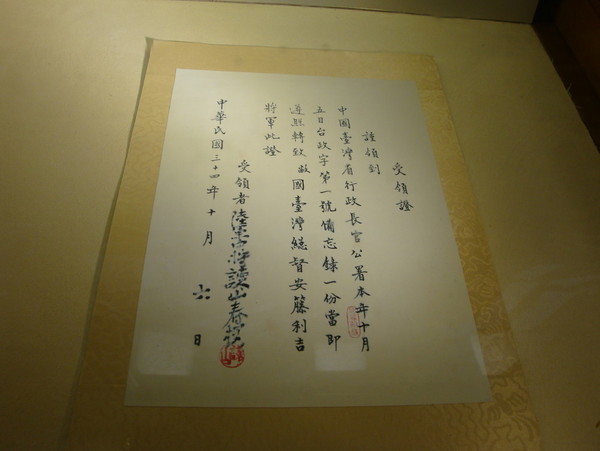 受領證
謹領到
中國臺灣省行政長官公署本年十月
五日台政字第一號備忘錄一份當即
遵照轉致敝國臺灣總督安藤利吉
將軍此證
受領者陸軍中將諫山春樹
中華民國三十四年十月六日